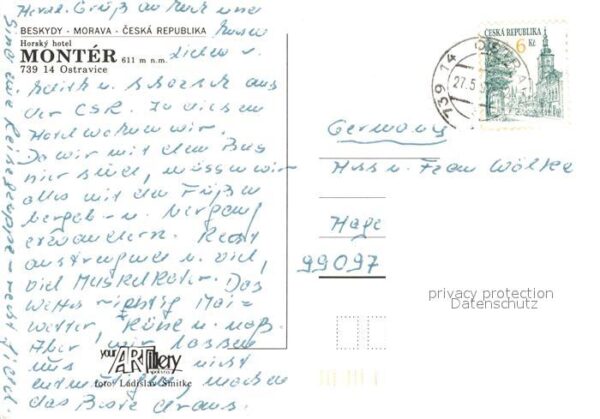 Herzl. Grüße an Euch und
BESKYDY - MORAVA - ČESKÁ REPUBLIKA
Horský hotel
MONTÉR 611 m n.m.
739 14 Ostravice
Lieben v.
aus
der ČSR. In diesem
Hotel wohnen wir.
Da wir mit dem Bus
hier sind, müssen wir
alles mit den Füßen
bergab- u. bergauf
erwandern. Recht
anstrengend u. viel,
viel Muskelkater. Das
Wetter richtig Mai-
wetter, Kühl u. naß.
Aber wir lassen
uns nicht
entmutigen, machen
das Beste draus.
Sind eine Reisegruppe - recht
your ARTillery
foto: Ladislav Smítke
ČESKÁ REPUBLIKA
6 Kč
739 14
27.5
Germany
Herr u. Frau Wölke
Hage
99097
privacy protection
Datenschutz